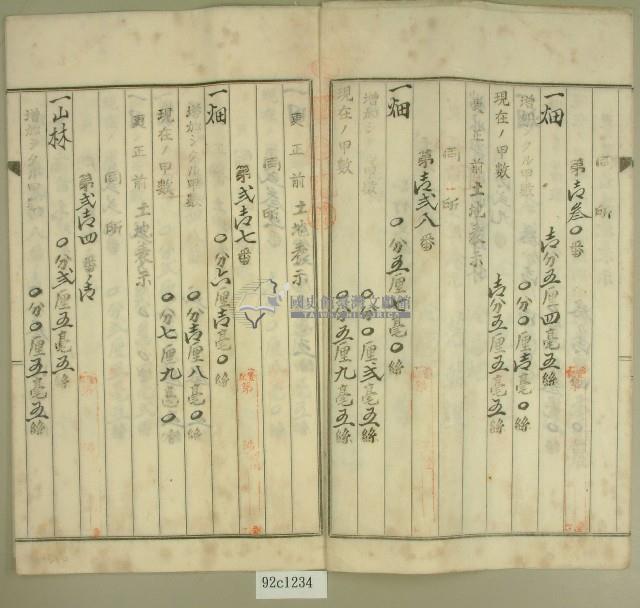 同所
第壱参〇番
一畑 壱分五厘四毫五絲
増加シタル甲数 〇分〇厘壱毫〇絲
現在ノ甲数 壱分五厘五毫五絲
更正前土地表示
同所
第壱弐八番
一畑 〇分五厘七毫〇絲
増加シタル甲数 〇分〇厘弐毫五絲
現在ノ甲数 〇分五厘九毫五絲
更正前土地表示
同所
第弐壱七番
一畑 〇分六厘壱毫〇絲
増加シタル甲数 〇分壱厘八毫〇絲
現在ノ甲数 〇分七厘九毫〇
更正前土地表示
同所
第弐壱四番ノ壱
一山林 〇分弐厘五毫五絲
増加シタル甲数 〇分〇厘五毫五絲
國史館臺灣文獻館
TAIWAN HISTORICA
92c1234